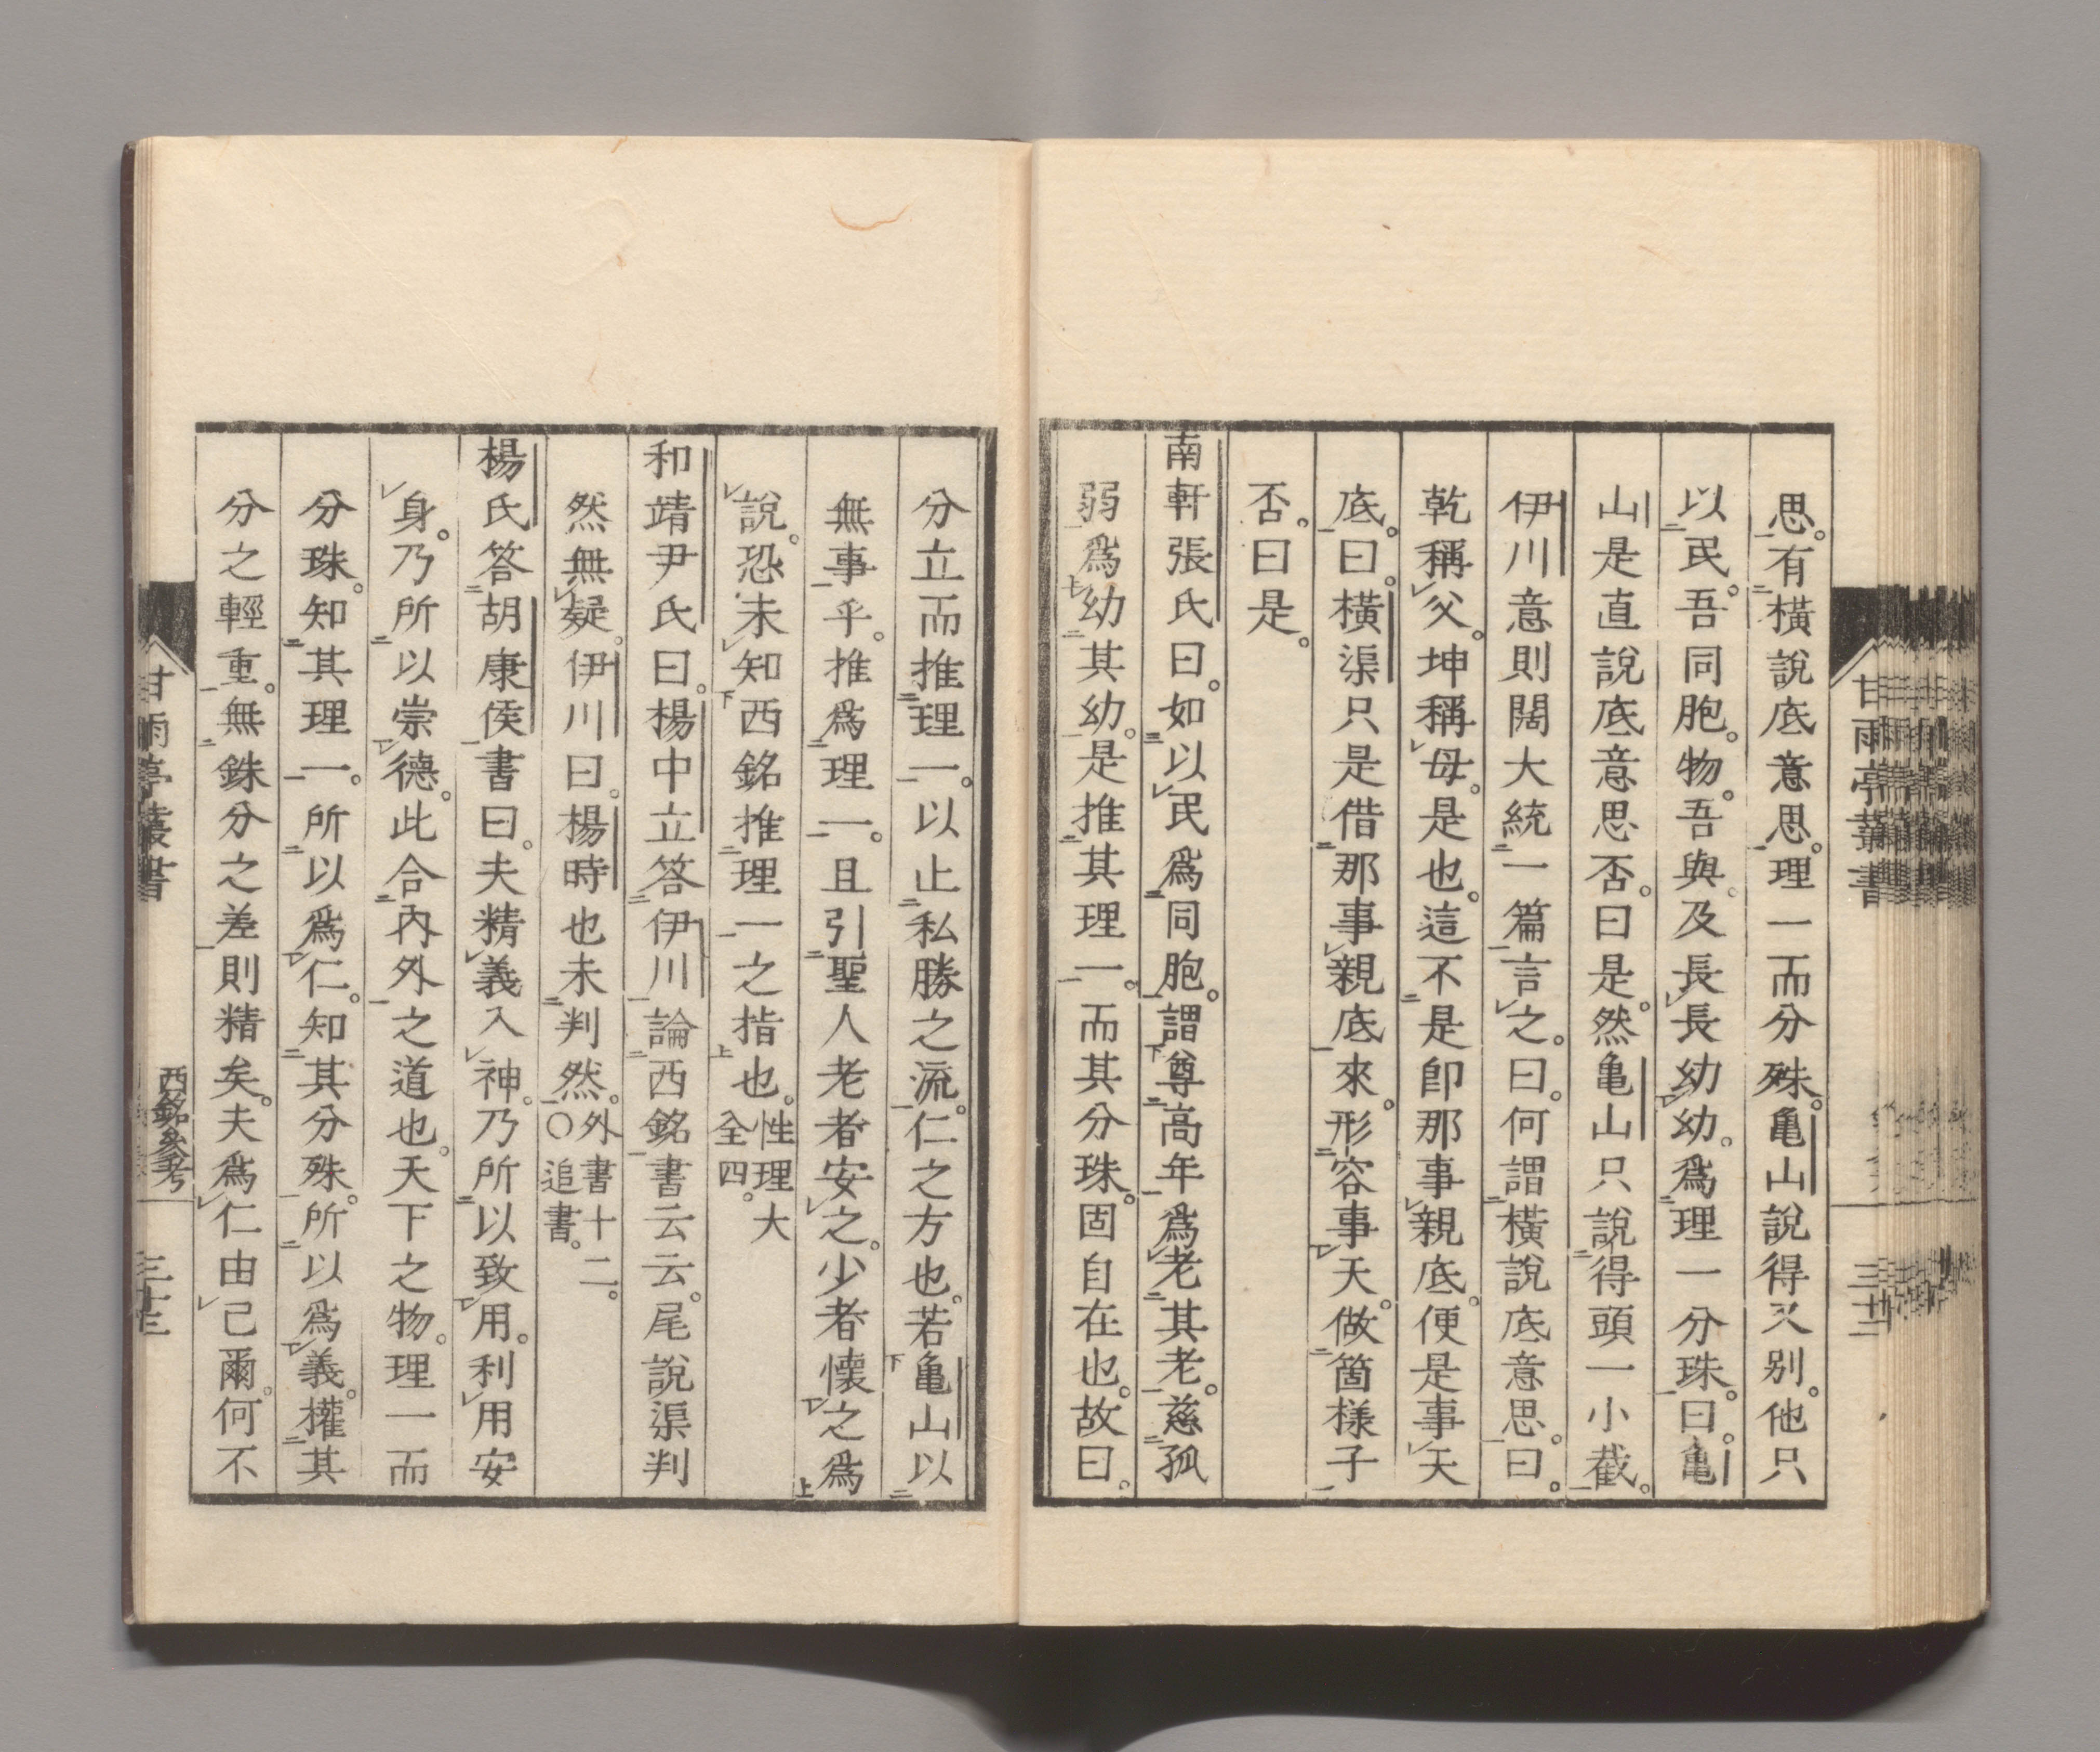 思。有橫說底意思。理一而分殊。亀山說得又别。他只
以民。吾同胞。物。吾與。及長長幼幼。爲理一分珠。曰。亀
山是直說底意思否。曰是。然亀山只說得頭一小截。
伊川意則闊大統一篇言之。曰。何謂橫說底意思。曰。
乾稱父。坤稱母。是也。這不是卽那事親底。便是事天
底。曰。橫渠只是借那事親底來。形容事天。做箇樣子
否。曰是。
南軒張氏曰。如以民爲同胞。謂尊高年爲老其老。慈孤
弱爲幼其幼。是推其理一。而其分珠。固自在也。故曰。
甘雨亭叢書
三十二
分立而推理一。以止私勝之流。仁之方也。若亀山以
無事乎。推爲理一。且引聖人老者安之。少者懐之爲
說。恐未知西銘推理一之指也。性理大全四。
和靖尹氏曰。楊中立答伊川論西銘書云云。尾說渠判
然無疑。伊川曰。楊時也未判然。○外書十二。追書。
楊氏答胡康侯書曰。夫精義入神。乃所以致用。利用安
身。乃所以崇德。此合內外之道也。天下之物。理一而
分珠。知其理一。所以爲仁。知其分殊。所以爲義。權其
分之輕重。無銖分之差。則精矣。夫爲仁由己爾。何不
甘雨亭叢書
西銘參考
三十三